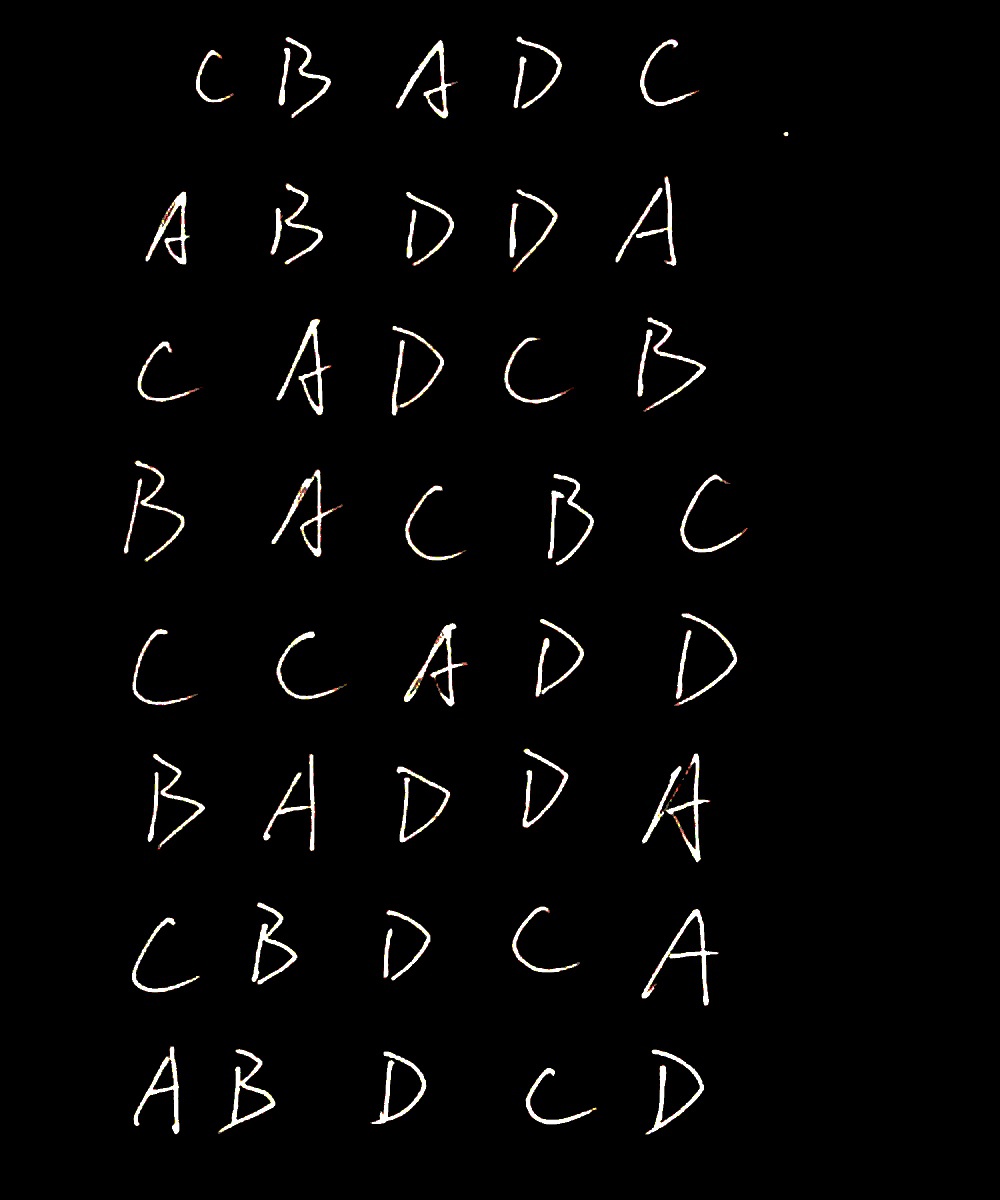 C B A D C
A B D D A
C A D C B
B A C B C
C C A D D
B A D D A
C B D C A
A B D C D